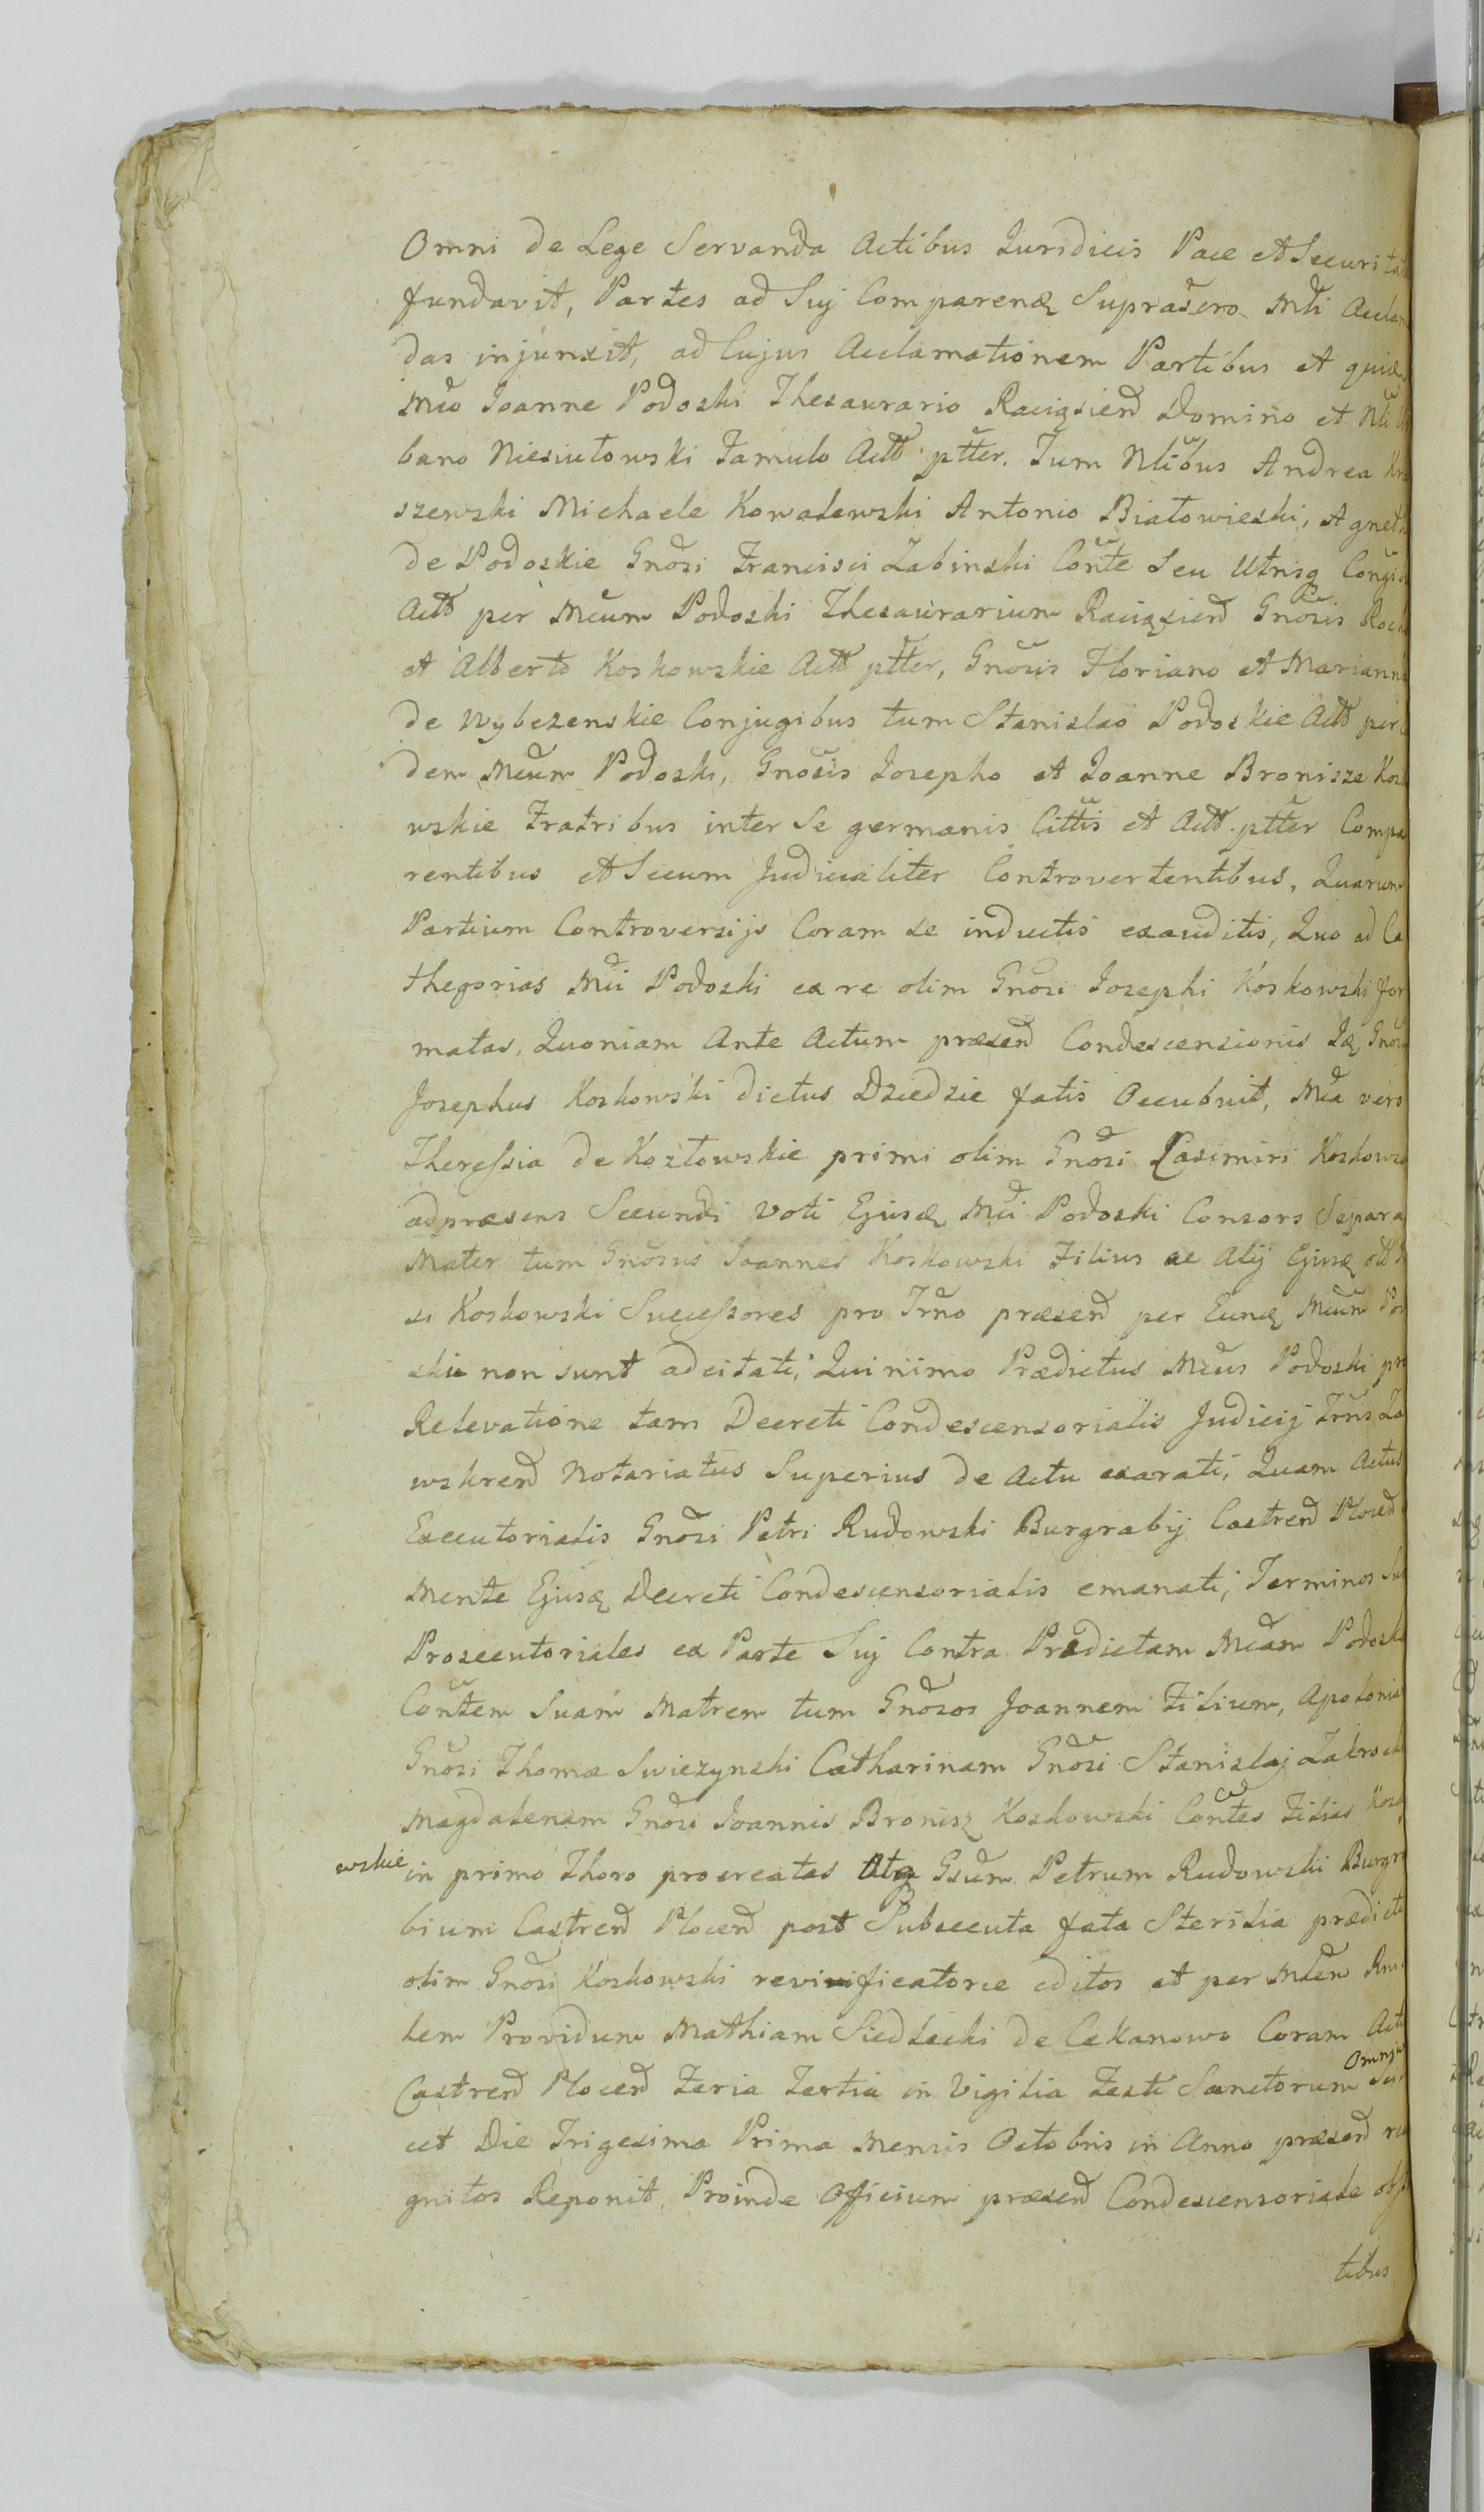 Omni de Lege Servanda Actibus Juridicis Pace et Securitat
fundavit, Partes ad Sui Comparenq Supradero Mti Acclam
das injunxit, ad Cujus Acclamationem Partibus et quid
Mco Joanne Podoski Thesaurario Raciązsień Domino et Nli
bano Niesiułowski Famulo Actt ptter. Tum Nlibus Andrea Kro
szewski Michaele Kowalewski Antonio Białowieski, Agneth
de Podoskie Gnosi Francisci Zabinski Conte Seu Utrisq Conju
Actt per Mcum Podoski Thesaurarium Raciązsień Gnosis Roch
et Alberto Koskowskie Actt ptter, Gnosis Floriano et Marianna
de Wybezenskie Conjugibus tum Stanislao Podoskie Actt per
dem Mcum Podoski, Gnosis Josepho et Joanne Bronisze Kosk
wskie Fratribus inter Se germanis Cittis et Actt ptter Compa
rentibus et Secum Judicialiter Controvertentibus, Quarum
Partium Controversijs Coram se inductis exauditis, Quo ad Ca
thegorias Mci Podoski ex re olim Gnosi Josephi Koskowski for
matas, Quoniam Ante Actum præsen Condescensionis Iq Gnos
Josephus Koskowski dictus Dziedzic fatis Occubuit, Mca vero
Theressia de Kozłowskie primi olim Gnosi Casimiri Koskows
adpræsens Secundi voti Ejusq Mci Podoski Consors Separa
Mater tum Gnosus Joannes Koskowski Filius ac Alij Ejusq
si Koskowski Successores pro Trno præsen per Eunq Mcum Po
skie non sunt adcitati, Quinimo Prædictus Mcus Podoski pro
Relevatione tam Decreti Condescensorialis Judicij Trris Za
wskren Notariatus Superius de Actu exarati, Quam Actus
Executorialis Gnosi Petri Rudowski Burgrabij Castren Plocen
Mente Ejusq Decreti Condescensorialis emanati, Terminos Su
Prosecutoriales ex Parte Sui Contra Prædictam Mcam Podosk
Contem Suam Matrem tum Gnosos Joannem Filium, Apolonia
Gnosi Thomæ Swiezynski Catharinam Gnosi Stanislaj Zakroch
Magdalenam Gnosi Joannis Bronisz Koskowski Contes Filias Kosk
wskie in primo Thoro procreatas Atq Gsum Petrum Rudowski Burgra
bium Castren Plocen post Subsecuta fata Sterilia prædicti
olim Gnosi Koskowski revivificatorie editos et per Mlem Rni
lem Providum Mathiam Siedlecki de Cekanowo Coram Act
Castren Plocen Feria Tertia in Vigilia Festi Sanctorum Omniu Sci
cet Die Trigesima Prima Mensis Octobris in Anno præsen reco
gnitos Reponit, Proinde Officium præsen Condescensoriale obs
tibus